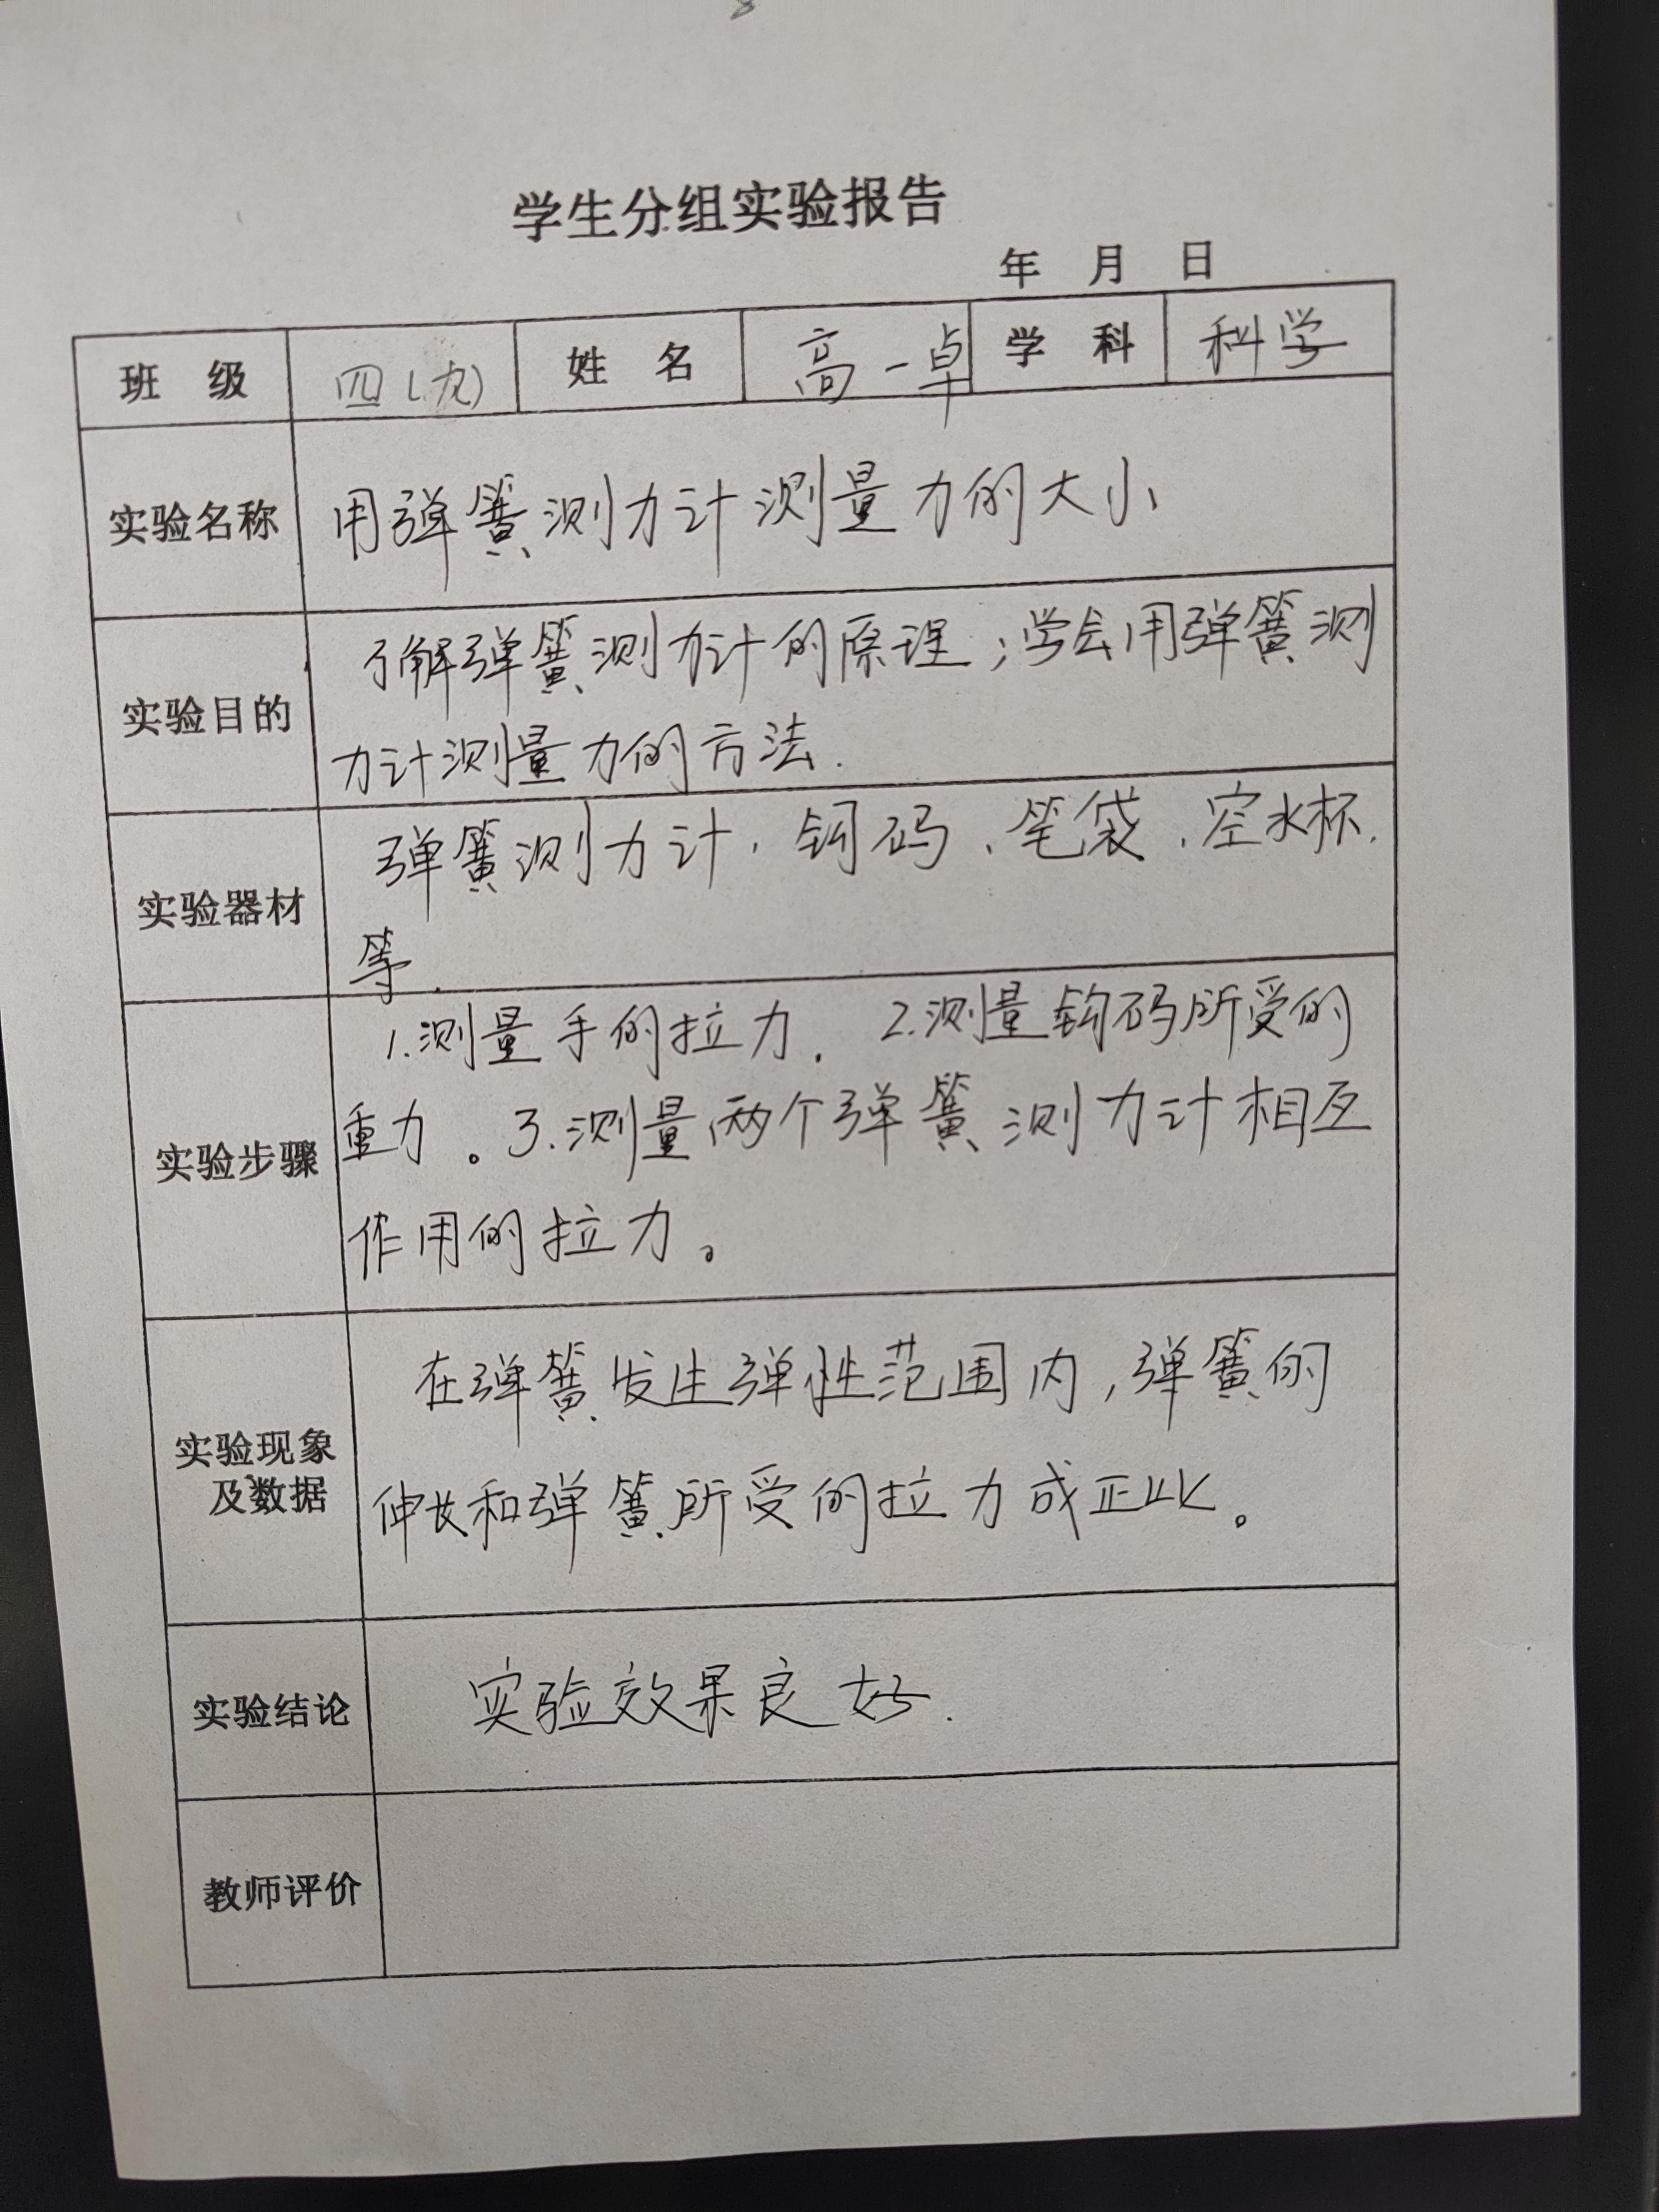 学生分组实验报告
年 月 日
班 级 四(九) 姓 名 高一卓 学 科 科学
实验名称 用弹簧测力计测量力的大小
实验目的 了解弹簧测力计的原理;学会用弹簧测
力计测量力的方法.
实验器材 弹簧测力计、钩码、笔袋、空水杯.
等.
实验步骤 1.测量手的拉力. 2.测量钩码所受的
重力。3.测量两个弹簧测力计相互
作用的拉力。
实验现象
及数据
在弹簧发生弹性范围内,弹簧的
伸长和弹簧所受的拉力成正比。
实验结论 实验效果良好.
教师评价